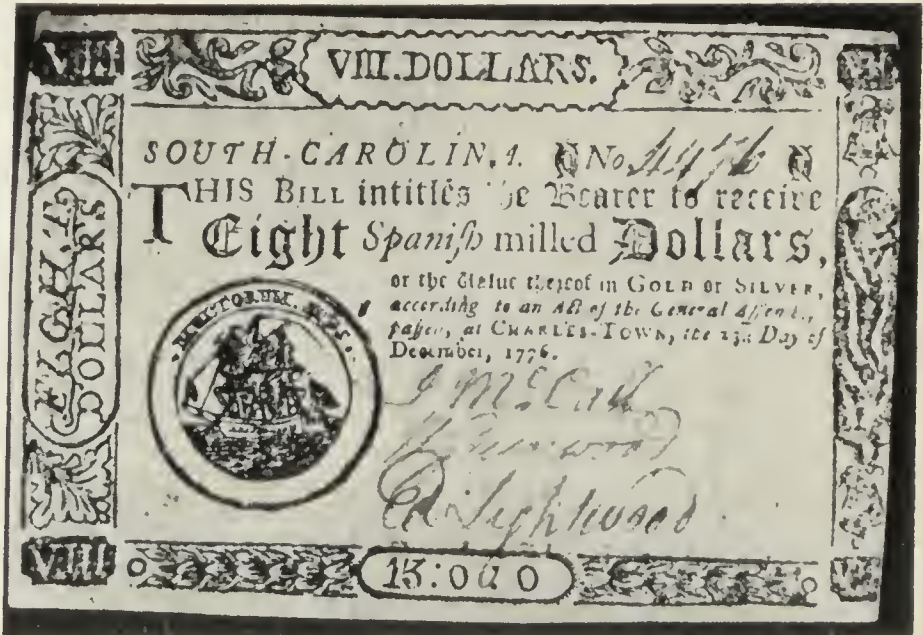 VIII
VIII.DOLLARS.
SOUTH-CAROLINA. No 4476
THIS BILL intitles the Bearer to receive
Eight Spaniſh milled Dollars,
or the Value thereof in GOLD or SILVER,
according to an Act of the General Aſſembly,
paſſed, at CHARLES-TOWN, the 23d. Day of
December, 1776.
EIGHT
DOLLARS
J McCall
Ed Lightwood
VIII
15:000